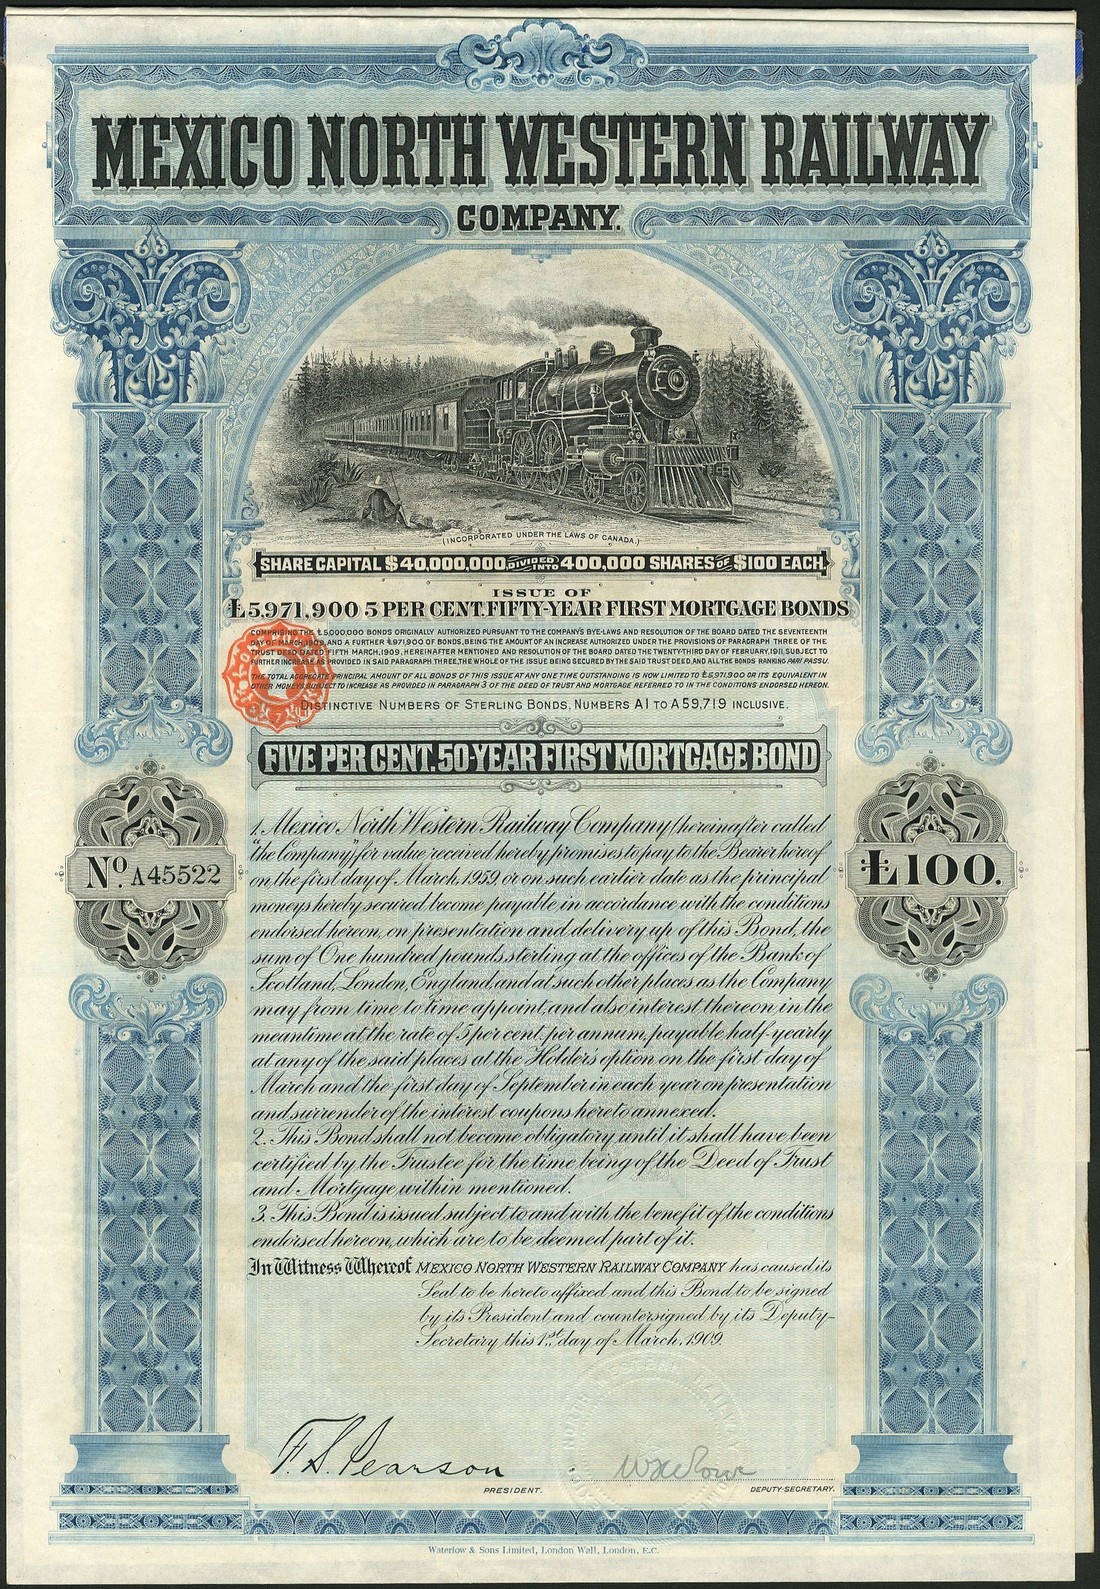 MEXICO NORTH WESTERN RAILWAY
COMPANY.
(INCORPORATED UNDER THE LAWS OF CANADA.)
SHARE CAPITAL $40,000,000 DIVIDED INTO 400,000 SHARES OF $100 EACH.
ISSUE OF
£5,971,900 5 PER CENT. FIFTY-YEAR FIRST MORTGAGE BONDS
COMPRISING THE £5,000,000 BONDS ORIGINALLY AUTHORIZED PURSUANT TO THE COMPANY'S BYE-LAWS AND RESOLUTION OF THE BOARD DATED THE SEVENTEENTH
DAY OF MARCH, 1909, AND A FURTHER £971,900 OF BONDS, BEING THE AMOUNT OF AN INCREASE AUTHORIZED UNDER THE PROVISIONS OF PARAGRAPH THREE OF THE
TRUST DEED DATED FIFTH MARCH, 1909, HEREINAFTER MENTIONED AND RESOLUTION OF THE BOARD DATED THE TWENTY-THIRD DAY OF FEBRUARY, 1911, SUBJECT TO
FURTHER INCREASE AS PROVIDED IN SAID PARAGRAPH THREE, THE WHOLE OF THE ISSUE BEING SECURED BY THE SAID TRUST DEED, AND ALL THE BONDS RANKING PARI PASSU.
THE TOTAL AGGREGATE PRINCIPAL AMOUNT OF ALL BONDS OF THIS ISSUE AT ANY ONE TIME OUTSTANDING IS NOW LIMITED TO £5,971,900 OR ITS EQUIVALENT IN
OTHER MONEYS, SUBJECT TO INCREASE AS PROVIDED IN PARAGRAPH 3 OF THE DEED OF TRUST AND MORTGAGE REFERRED TO IN THE CONDITIONS ENDORSED HEREON.
DISTINCTIVE NUMBERS OF STERLING BONDS, NUMBERS A1 TO A59,719 INCLUSIVE.
FIVE PER CENT. 50-YEAR FIRST MORTGAGE BOND
No. A45522
£100.
1. Mexico North Western Railway Company (hereinafter called
"the Company") for value received hereby promises to pay to the Bearer hereof
on the first day of March, 1959, or on such earlier date as the principal
moneys hereby secured become payable in accordance with the conditions
endorsed hereon, on presentation and delivery up of this Bond, the
sum of One hundred pounds sterling at the offices of the Bank of
Scotland, London, England, and at such other places as the Company
may from time to time appoint, and also interest thereon in the
meantime at the rate of 5 per cent. per annum, payable half-yearly
at any of the said places at the Holder's option on the first day of
March and the first day of September in each year on presentation
and surrender of the interest coupons hereto annexed.
2. This Bond shall not become obligatory until it shall have been
certified by the Trustee for the time being of the Deed of Trust
and Mortgage within mentioned.
3. This Bond is issued subject to and with the benefit of the conditions
endorsed hereon, which are to be deemed part of it.
In Witness Whereof MEXICO NORTH WESTERN RAILWAY COMPANY has caused its
Seal to be hereto affixed and this Bond to be signed
by its President and countersigned by its Deputy-
Secretary this 1st day of March, 1909.
F. S. Pearson
PRESIDENT.
DEPUTY-SECRETARY.
Waterlow & Sons Limited, London Wall, London, E.C.